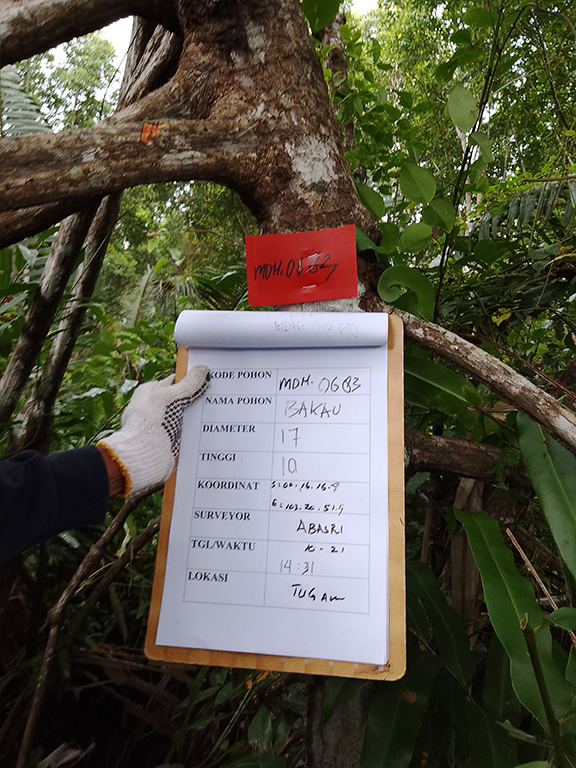 KODE POHON MDH. 0683
NAMA POHON BAKAU
DIAMETER 17
TINGGI 10
KOORDINAT S: 00. 16. 16.9
E: 103. 20. 51.5
SURVEYOR ABASRI
TGL/WAKTU 10-21
14:31
LOKASI